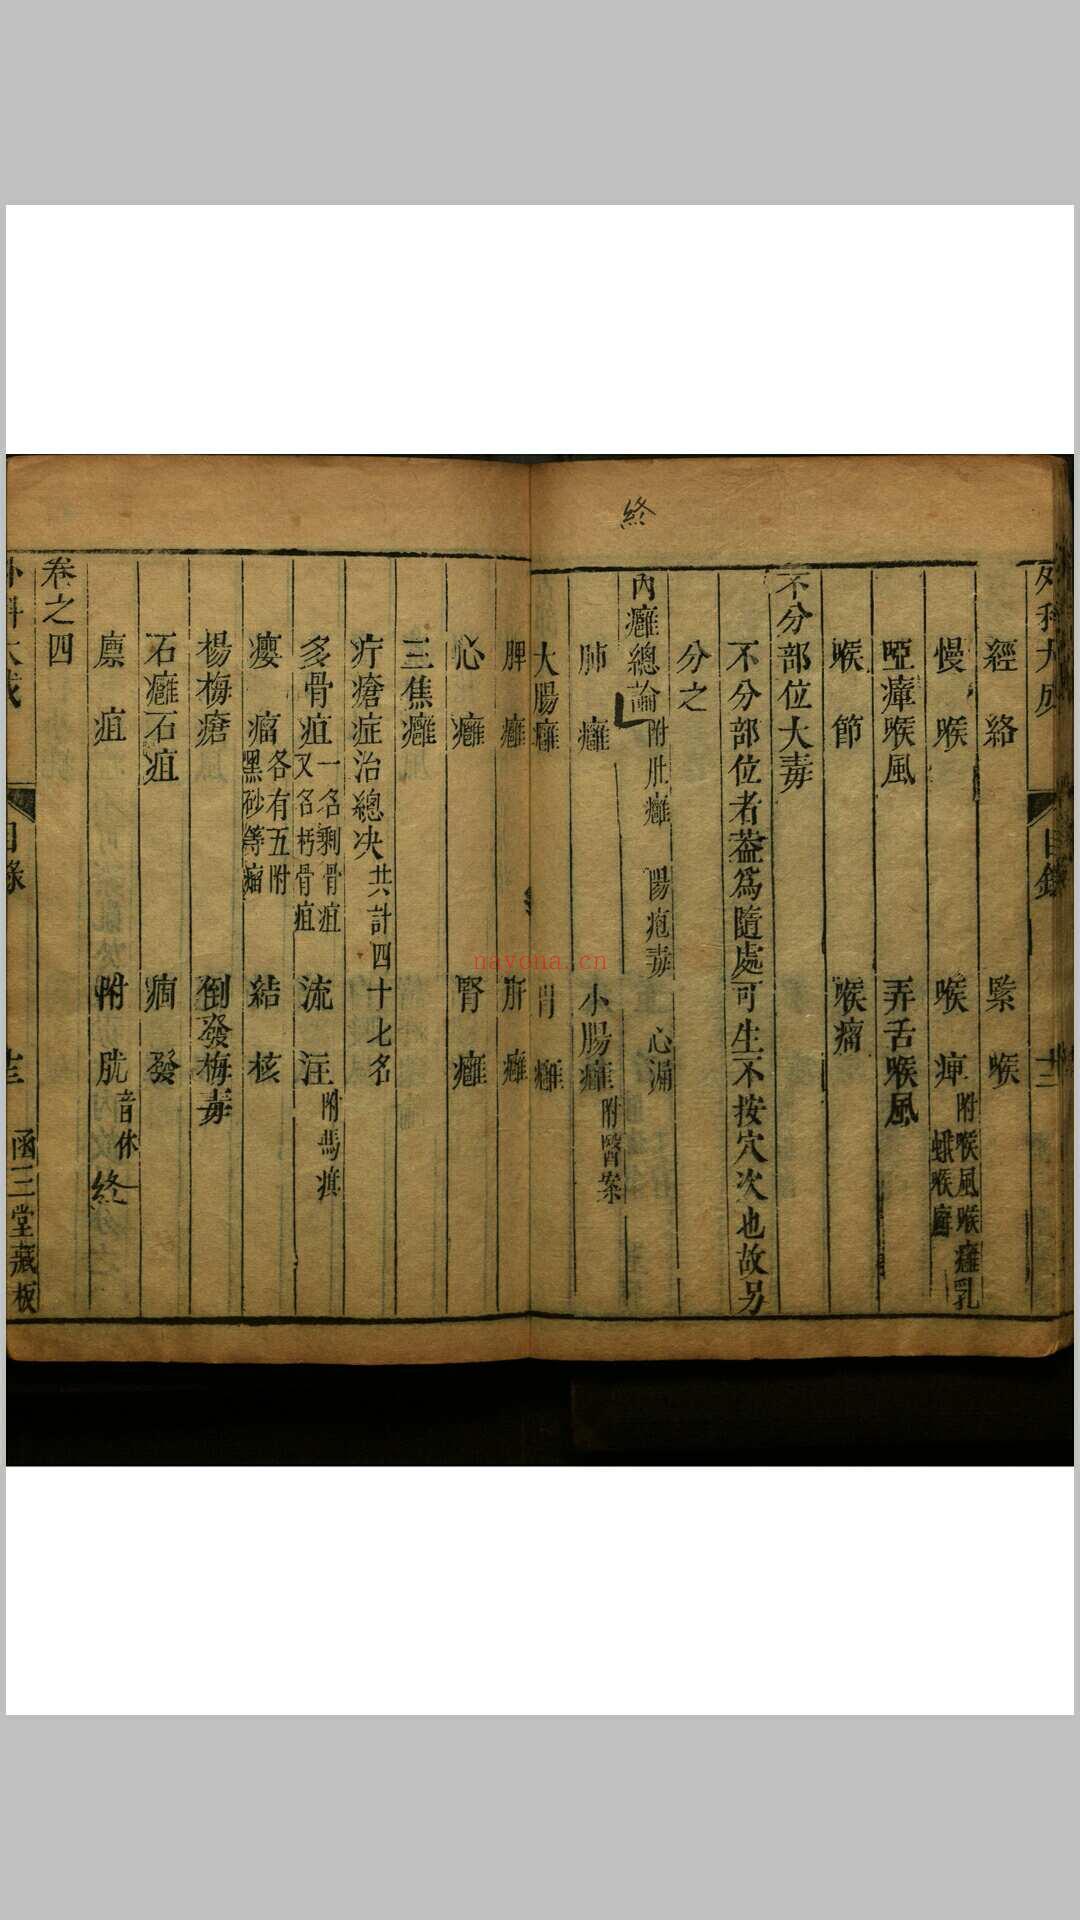 終
外科大成
目錄
十三
經絡 緊喉
慢喉 喉痺附喉風喉癰乳蛾喉癬
啞瘴喉風 弄舌喉風
喉節 喉瘤
不分部位大毒
不分部位者蓋爲隨處可生不按穴次也故另
分之
內癰總論附肚癰 腸疱毒 心漏
肺癰 小腸癰附醫案
大腸癰 胃癰
脾癰 肝癰
心癰 腎癰
三焦癰
疔瘡症治總决共計四十七名
多骨疽一名剩骨疽又名朽骨疽 流注附馮瘨
癭瘤各有五附黑砂等瘤 結核
楊梅瘡 倒發梅毒
石癰石疽 痼發
廪疽 附胱音休 終
卷之四
外科大成
目錄
函三堂藏板
nayona.cn